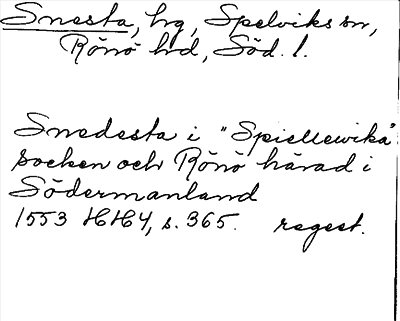 Snesta, hg, Spelviks sn,
Rönö hd, Söd. l.
Snedesta i "Spiellewika"
socken och Rönö härad i
Södermanland
1553 HH4, s. 365. regest.